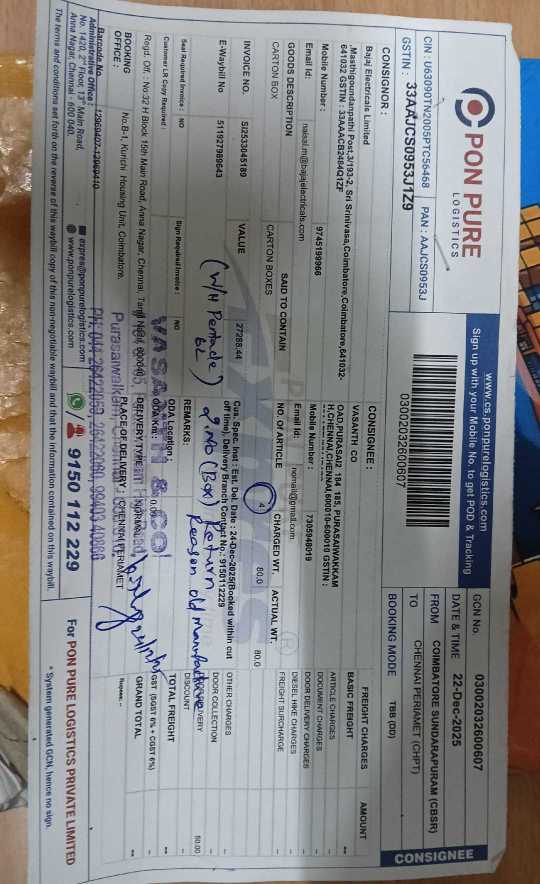 PON PURE
LOGISTICS
www.cs.ponpurelogistics.com
Sign up with your Mobile No. to get POD & Tracking
CIN : U63090TN2005PTC56468 PAN : AAJCS0953J
GSTIN : 33AAJCS0953J1Z9
03002032600607
GCN No. 03002032600607
DATE & TIME 22-Dec-2025
FROM COIMBATORE SUNDARAPURAM (CBSR)
TO CHENNAI PERIAMET (CHPT)
BOOKING MODE TBB (DD)
CONSIGNEE
CONSIGNOR :
Bajaj Electricals Limited
,Masthigoundanpathi Post,3/193-2, Sri Srinivasa,Coimbatore,Coimbatore,641032-
641032 GSTIN : 33AAACB2484Q1ZF
Mobile Number : 9745199966
Email Id: naisal.m@bajajelectricals.com
CONSIGNEE :
VASANTH CO
184 185, PURASAIWAKKAM
H,CHENNAI,CHENNAI,600010-600010 GSTIN :
Mobile Number : 7395948019
Email Id:
GOODS DESCRIPTION SAID TO CONTAIN NO. OF ARTICLE CHARGED WT. ACTUAL WT.
CARTON BOX CARTON BOXES 4 80.0 80.0
INVOICE NO. SI2533045189 VALUE 27288.44
E-Waybill No 511927989643
Cus. Spec. Inst : Est. Del. Date : 24-Dec-2025(Booked within cut
off time), Delivery Branch Contact No.: 9150112229
(W/H Pentacle)
6L
2.NO (Box) Return
Reason old manufacture
Customer LR Copy Required : NO
Seal Required Invoice : NO Sign Required Invoice : NO
REMARKS:
ODA Location :
ODA Km :
Regd. Off. : No:32 H Block 15th Main Road, Anna Nagar, Chennai, Tamil Nadu, 600040.
DELIVERY TYPE : NORMAL
BOOKING OFFICE : No.B-1, Kurichi Housing Unit, Coimbatore.
PLACE OF DELIVERY : CHENNAI PERIAMET
VASANTH & CO
FREIGHT CHARGES AMOUNT
BASIC FREIGHT **
ARTICLE CHARGES
DOCUMENT CHARGES
DOOR DELIVERY CHARGES
DIESEL HIKE CHARGES
FREIGHT SURCHARGE
OTHER CHARGES
DOOR COLLECTION
DISCOUNT
50.00
TOTAL FREIGHT
GST (SGST 6% + CGST 6%) **
GRAND TOTAL **
Rupees --
Barcode No.
Administrative office :
No. 1420, 2nd Floor, 13th Main Road,
Anna Nagar, Chennai - 600 040.
expres@ponpurelogistics.com
www.ponpurelogistics.com
9150 112 229
For PON PURE LOGISTICS PRIVATE LIMITED
The terms and conditions set forth on the reverse of this waybill copy of this non-negotiable waybill and that the information contained on this waybill.
* System generated GCN, hence no sign.